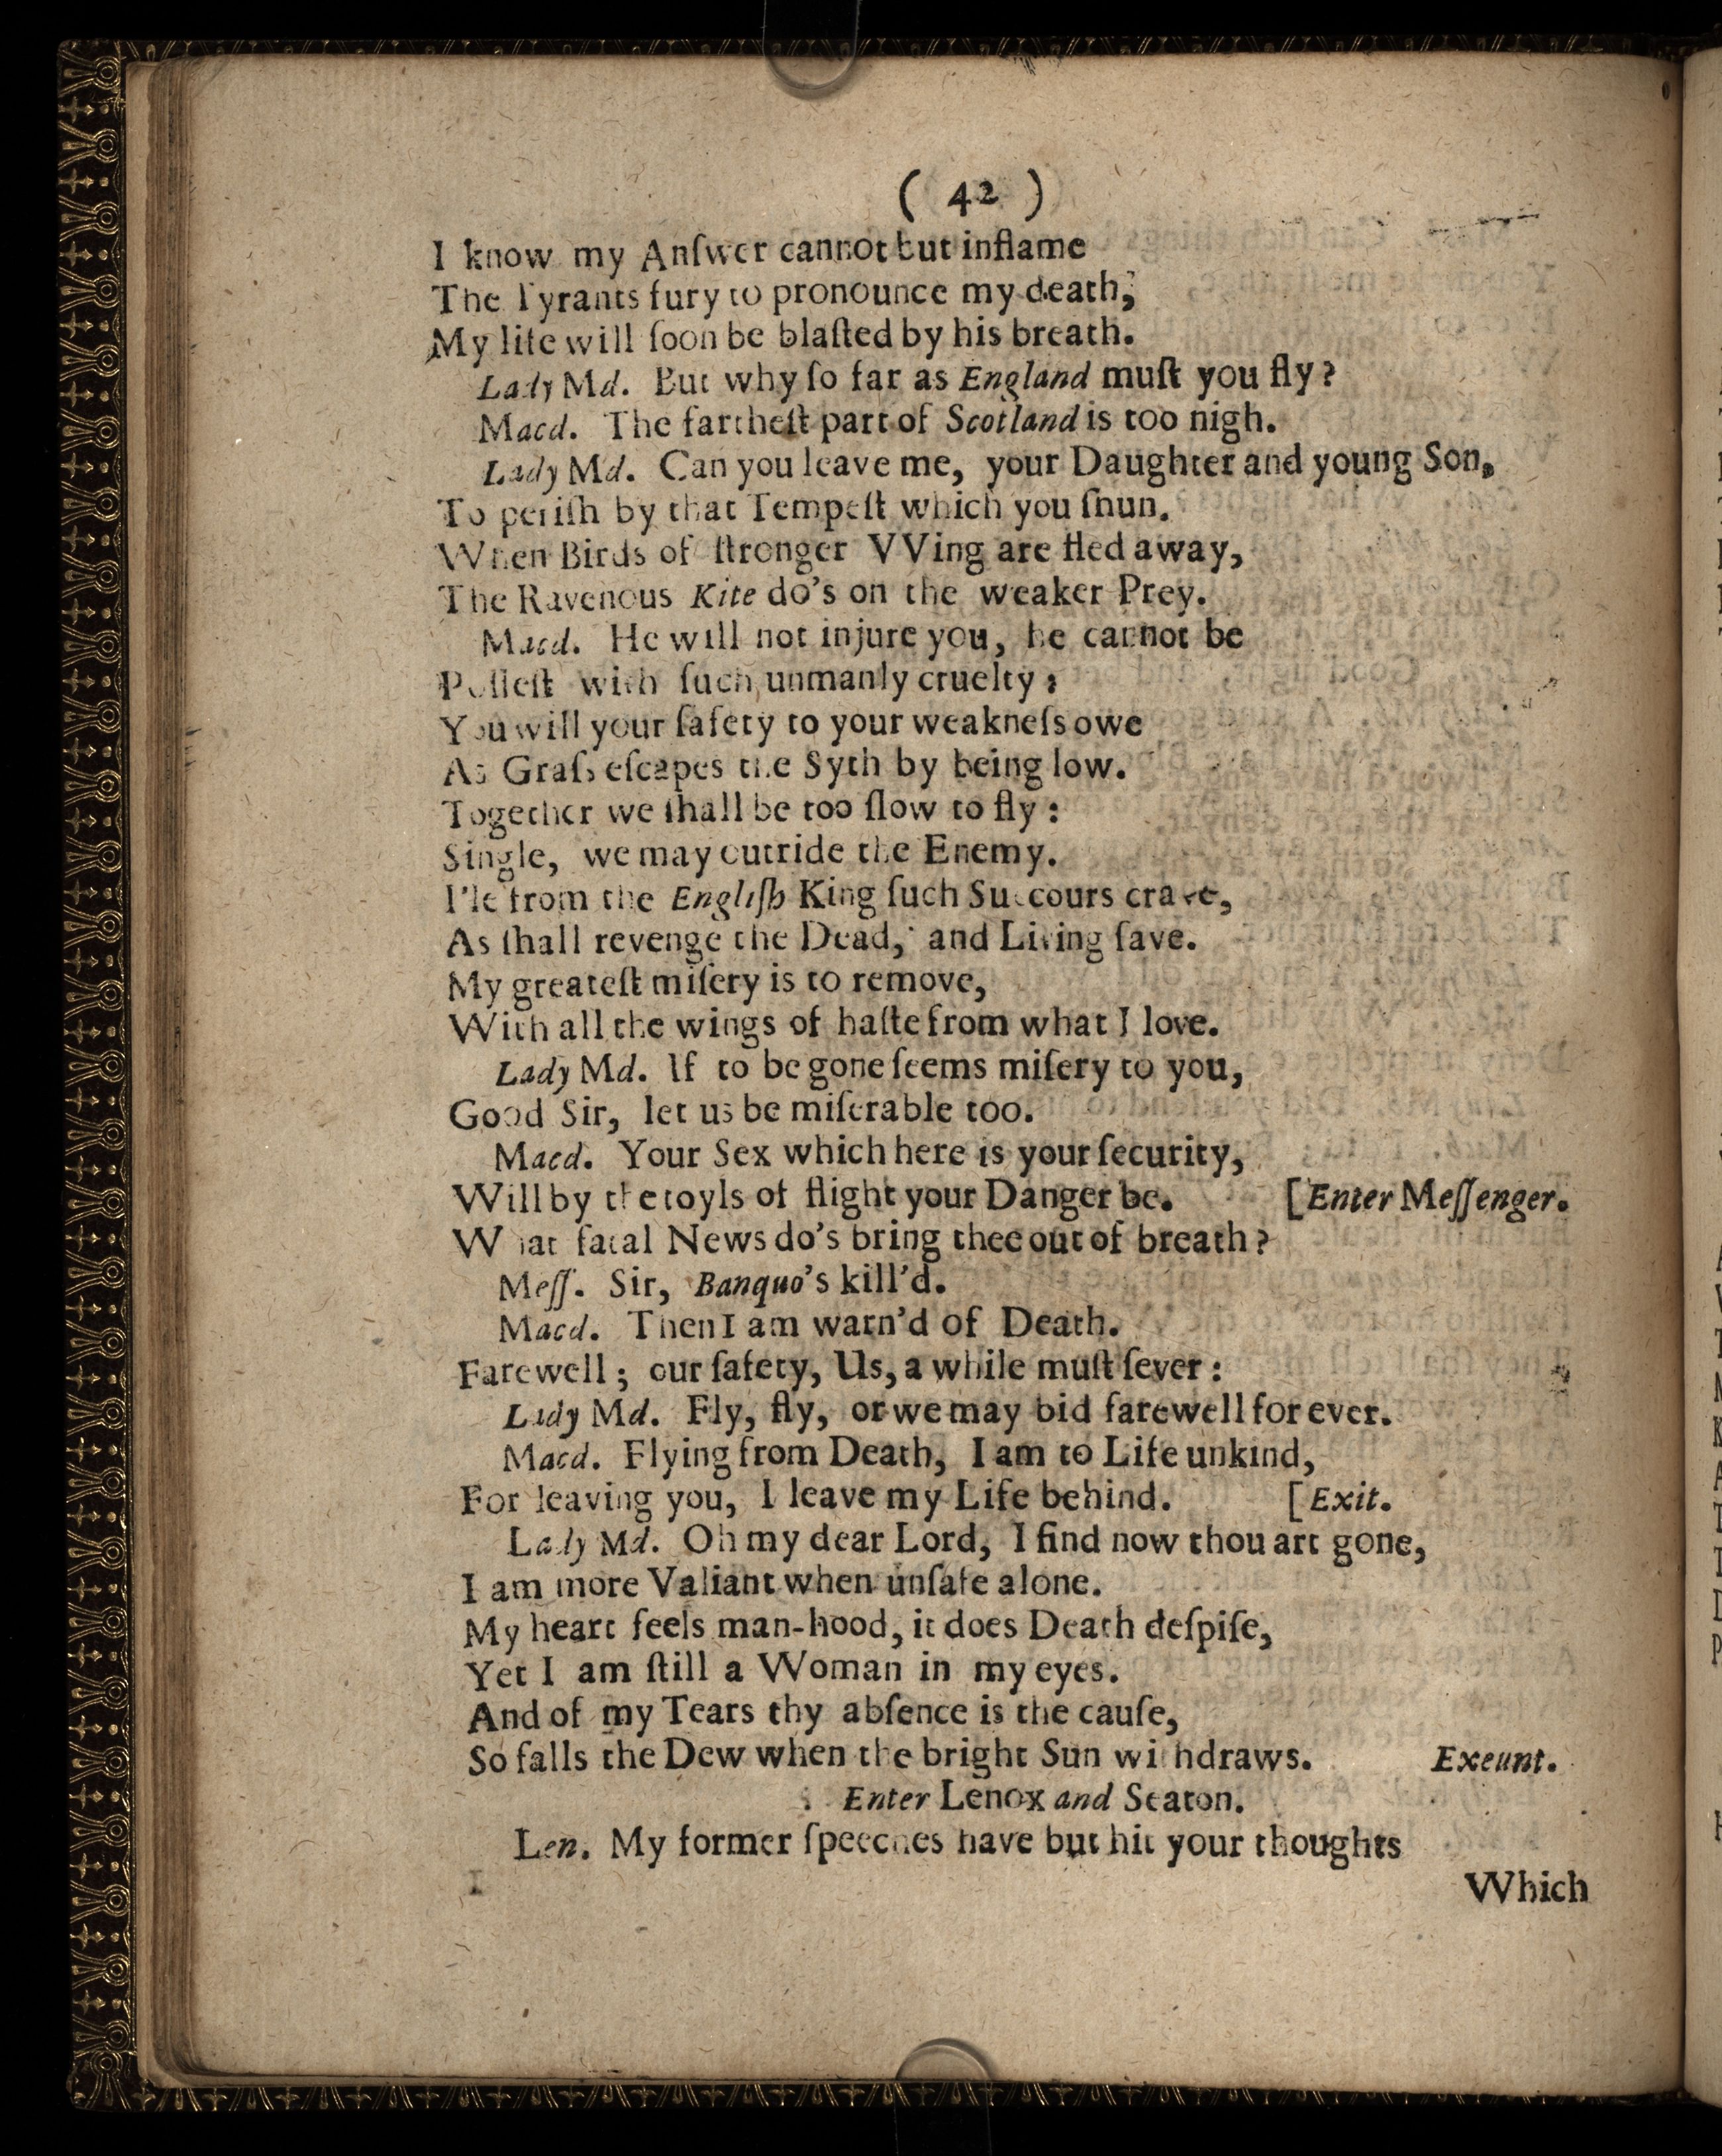 ( 42 )
I know my Anſwer cannot but inflame
The Tyrants fury to pronounce my death;
My life will ſoon be blaſted by his breath.
Lady Md. But why ſo far as England muſt you fly?
Macd. The fartheſt part of Scotland is too nigh.
Lady Md. Can you leave me, your Daughter and young Son,
To periſh by that Tempeſt which you ſhun.
When Birds of ſtronger VVing are fled away,
The Ravenous Kite do's on the weaker Prey.
Macd. He will not injure you, he cannot be
Poſſeſt with ſuch unmanly cruelty:
You will your ſafety to your weakneſs owe
As Graſs eſcapes the Syth by being low.
Together we ſhall be too ſlow to fly:
Single, we may outride the Enemy.
I'le from the Engliſh King ſuch Succours crave,
As ſhall revenge the Dead, and Living ſave.
My greateſt miſery is to remove,
With all the wings of haſte from what I love.
Lady Md. If to be gone ſeems miſery to you,
Good Sir, let us be miſerable too.
Macd. Your Sex which here is your ſecurity,
Will by the toyls of flight your Danger be. [Enter Meſſenger.
What fatal News do's bring thee out of breath?
Meſſ. Sir, Banquo's kill'd.
Macd. Then I am warn'd of Death.
Farewell; our ſafety, Us, a while muſt ſever:
Lady Md. Fly, fly, or we may bid farewell for ever.
Macd. Flying from Death, I am to Life unkind,
For leaving you, I leave my Life behind. [Exit.
Lady Md. Oh my dear Lord, I find now thou art gone,
I am more Valiant when unſafe alone.
My heart feels man-hood, it does Death deſpiſe,
Yet I am ſtill a Woman in my eyes.
And of my Tears thy abſence is the cauſe,
So falls the Dew when the bright Sun withdraws. Exeunt.
Enter Lenox and Seaton.
Len. My former ſpeeches have but hit your thoughts
Which